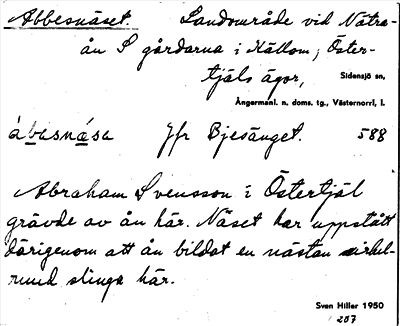 Abbesnäset. Landområde vid Nätra-
ån S gårdarna i Hällom, Öster-
tjäls ägor, Sidensjö sn,
Ångermanl. n. doms. tg., Västernorrl. l.
ábasnása Jfr Bjesänget. 588
Abraham Svensson i Östertjäl
grävde av ån här. Näset har uppstått
därigenom att ån bildat en nästan cirkel-
rund slinga här.
Sven Hiller 1950
207